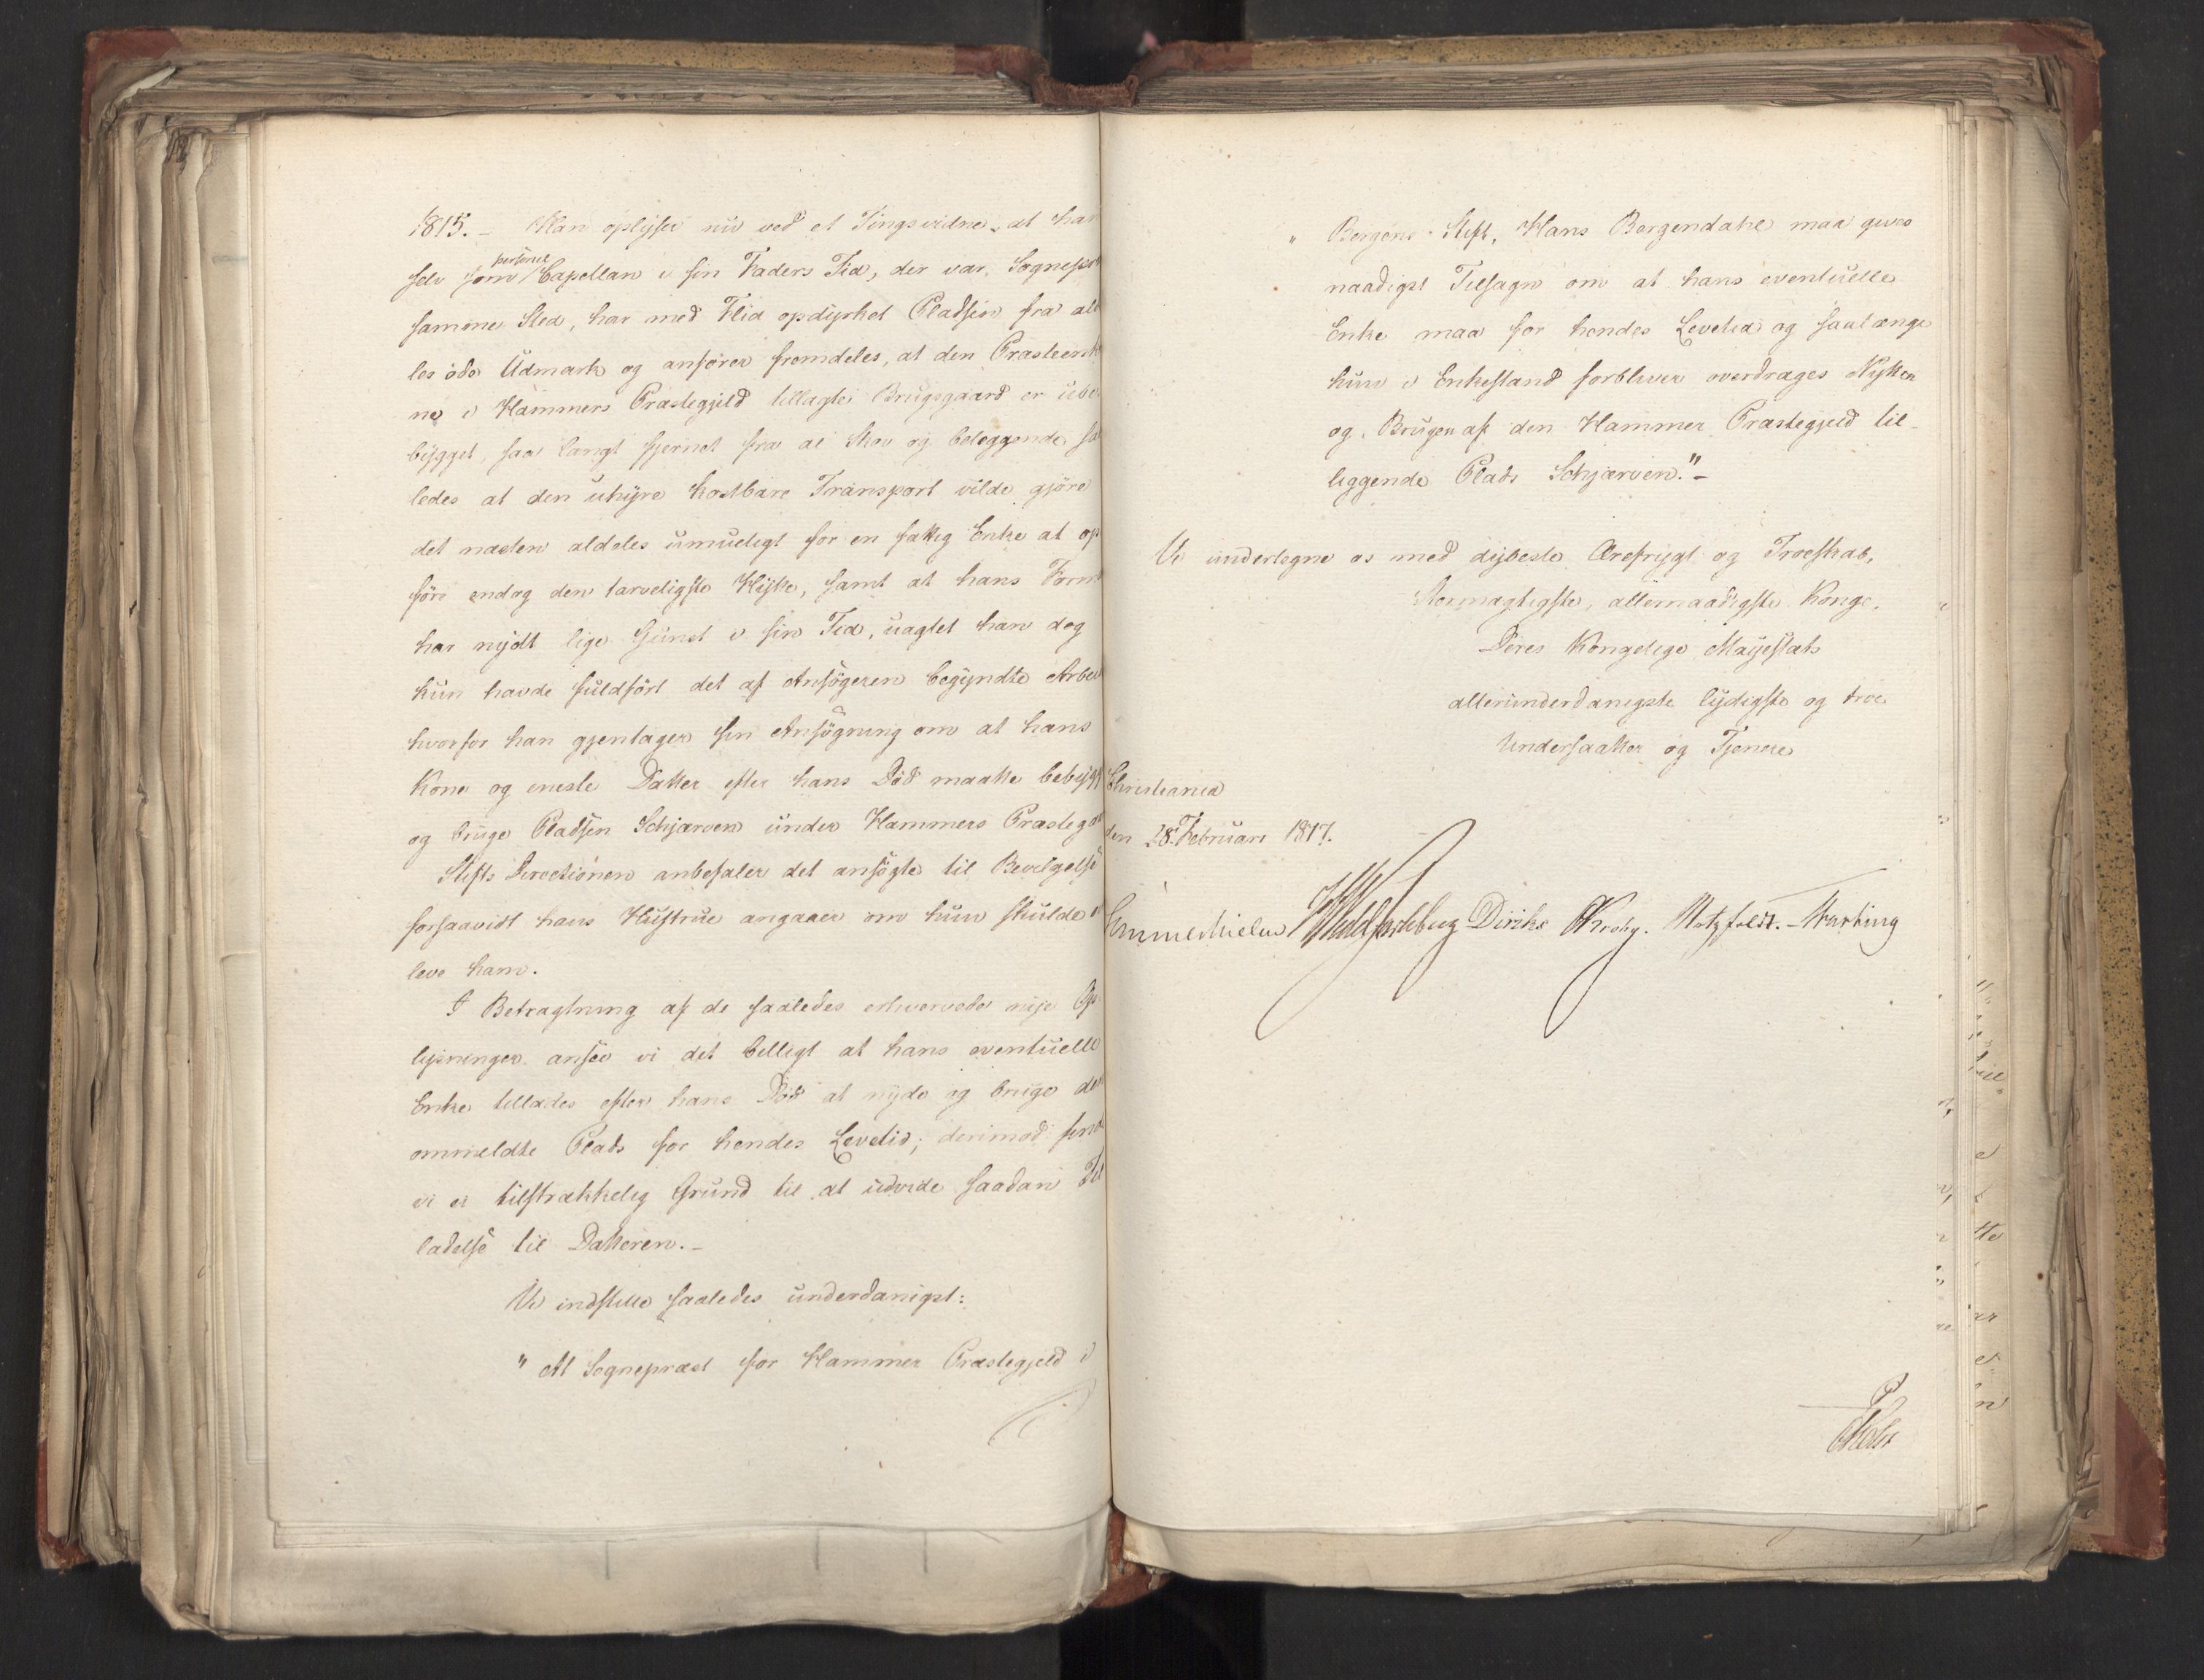 1815. – Han oplyser nu ved et Tingsvidne, at han
personel
selv som Capellan i sin Faders Tid, der var Sognepr
samme Sted, har med Flid opdyrket Pladsen fra al
les öde Udmark og anförer fremdeles, at den Præsteenk
ne i Hammers Præstegjeld tillagte Brugsgaard er ube
bygget, saa langt fjernet fra al Skov og beleggende sa
ledes at den uhyre kostbare Transport vilde gjöre
det næsten aldeles umueligt for en fattig Enke at op
före endog den tarveligste Hytte, samt at hans Form
har nydt lige Gunst i sin Tid, uagtet han dog
kun havde fuldfört det af Ansögeren begyndte Arbei
hvorfor han gjentager sin Ansögning om at hans
Kone og eneste Datter efter hans Död maatte beboe
og bruge Pladsen Schjærven under Hammers Præsteg
Stifts Directionen anbefaler det ansögte til Bevilgelse
forsaavidt hans Hustrue angaaer om hun skulde
leve ham.
I Betragtning af de saaledes erhvervede nye Op
lysninger ansee vi det billigt at hans eventuelle
Enke tillades efter hans Död at nyde og bruge de
ommeldte Plads for hendes Levetid; derimod find
vi ei tilstrækkelig Grund til at udvide saadan Til
ladelse til Datteren. –
Vi indstille saaledes underdanigst:
" At Sognepræst for Hammer Præstegjeld i
" Bergens Stift, Hans Bergendahl maa gives
naadigst Tilsagn om at hans eventuelle
Enke maa for hendes Levetid og saalænge
hun i Enkestand forbliver overdrages Nytten
og Brugen af den Hammer Præstegjeld til-
liggende Plads Schjærven." –
Vi undertegne os med dybeste Ærefrygt og Troeskab,
Stormægtigste, allernaadigste Konge,
Deres Kongelige Mayestæts
allerunderdanigste lydigste og troe
Undersaatter og Tjenere
Christiania
den 28. Februari 1817.
Sommerhielm Diriks Krohg. Motzfeldt.